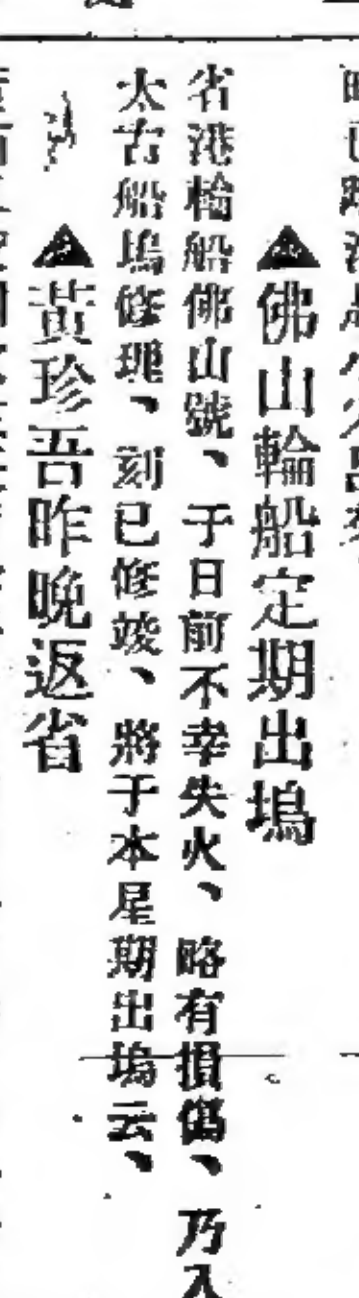 ▲佛山輪船定期出塢
省港輪船佛山號、于日前不幸失火、略有損傷、乃入
太古船塢修理、刻已修竣、將于本星期出塢云、
▲黃珍吾昨晚返省